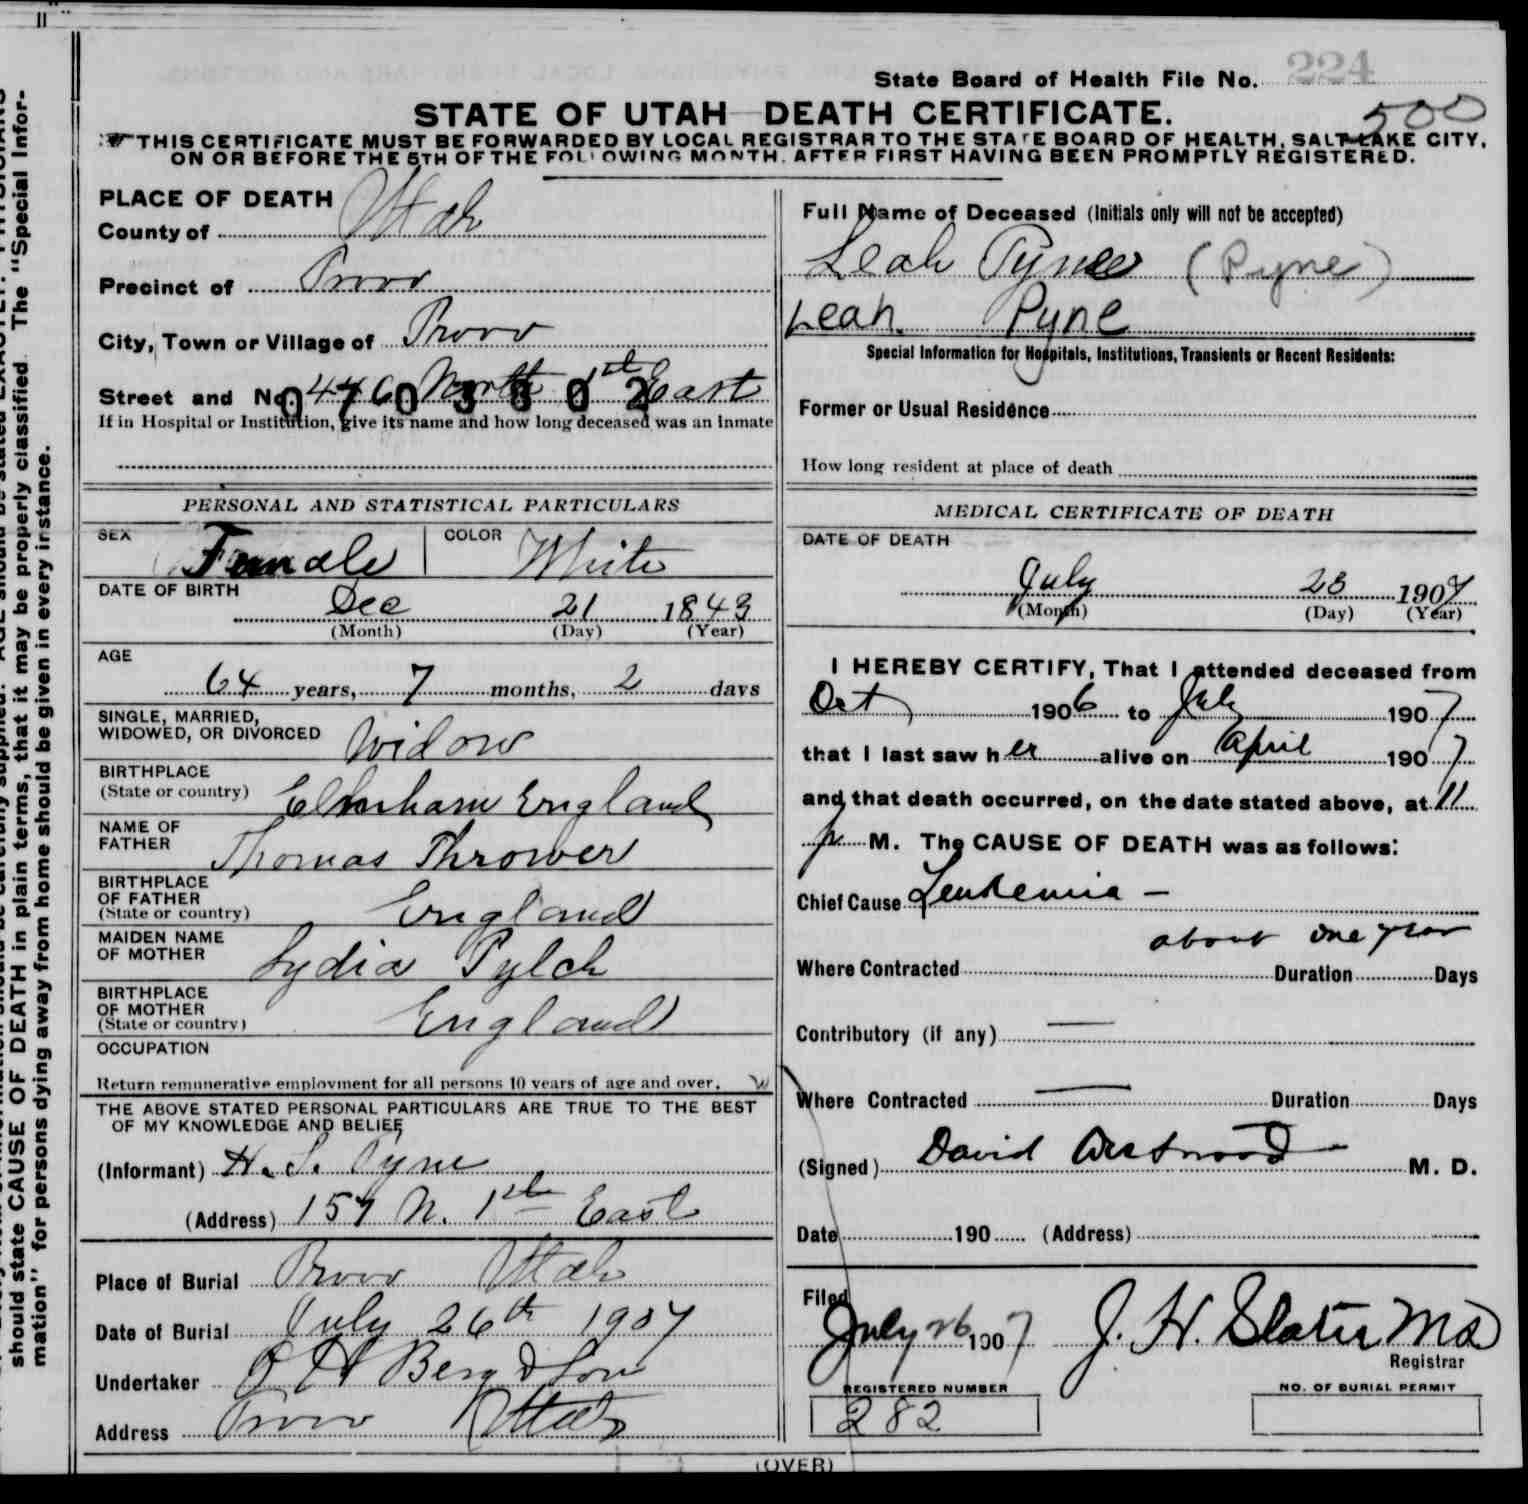 State Board of Health File No. 224
500
STATE OF UTAH—DEATH CERTIFICATE.
THIS CERTIFICATE MUST BE FORWARDED BY LOCAL REGISTRAR TO THE STATE BOARD OF HEALTH, SALT LAKE CITY,
ON OR BEFORE THE 5TH OF THE FOLLOWING MONTH, AFTER FIRST HAVING BEEN PROMPTLY REGISTERED.
should state CAUSE OF DEATH in plain terms, that it may be properly classified. The "Special Infor-
mation" for persons dying away from home should be given in every instance.
PLACE OF DEATH
County of Utah
Precinct of Provo
City, Town or Village of Provo
Street and No. 446 North 1st East
If in Hospital or Institution, give its name and how long deceased was an Inmate
PERSONAL AND STATISTICAL PARTICULARS
SEX Female COLOR White
DATE OF BIRTH
Dec 21 1843
(Month) (Day) (Year)
AGE
64 years, 7 months, 2 days
SINGLE, MARRIED,
WIDOWED, OR DIVORCED Widow
BIRTHPLACE
(State or country) England
NAME OF
FATHER Thomas Thrower
BIRTHPLACE
OF FATHER
(State or country) England
MAIDEN NAME
OF MOTHER Lydia Pylch
BIRTHPLACE
OF MOTHER
(State or country) England
OCCUPATION
Return remunerative employment for all persons 10 years of age and over.
THE ABOVE STATED PERSONAL PARTICULARS ARE TRUE TO THE BEST
OF MY KNOWLEDGE AND BELIEF
(Informant) H. S. Pyne
(Address) 157 N. 1st East
Place of Burial Provo Utah
Date of Burial July 26th 1907
Undertaker O H Berg & Son
Address Provo Utah
Full Name of Deceased (Initials only will not be accepted)
Leah Pyne (Pyne)
Leah Pyne
Special Information for Hospitals, Institutions, Transients or Recent Residents:
Former or Usual Residence
How long resident at place of death
MEDICAL CERTIFICATE OF DEATH
DATE OF DEATH
July 23 1907
(Month) (Day) (Year)
I HEREBY CERTIFY, That I attended deceased from
Oct 1906 to July 1907
that I last saw her alive on April 1907
and that death occurred, on the date stated above, at 11
p M. The CAUSE OF DEATH was as follows:
Chief Cause Leukemia —
about one year
Where Contracted Duration Days
Contributory (if any) —
Where Contracted — Duration Days
(Signed) David Westwood M. D.
Date 190 (Address)
Filed
July 26 1907 J. H. Slater MD
Registrar
REGISTERED NUMBER
282
NO. OF BURIAL PERMIT
(OVER)